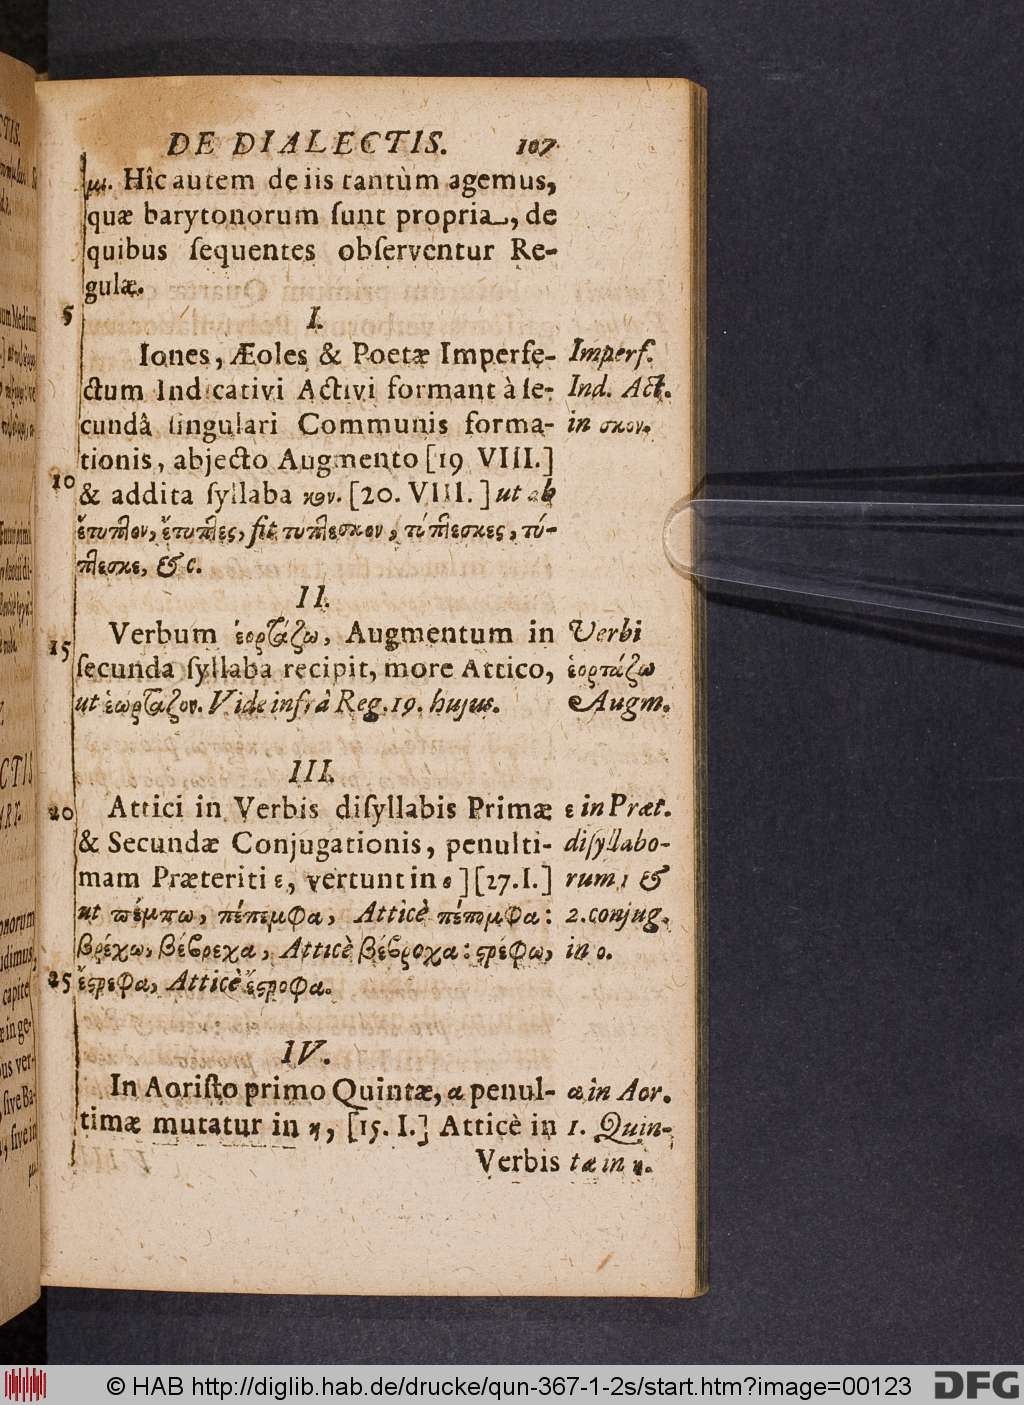 DE DIALECTIS. 107
μι. Hîc autem de iis tantùm agemus,
quæ barytonorum ſunt propria, de
quibus ſequentes obſerventur Re-
gulæ.
5
I.
Iones, Æoles & Poetæ Imperfe- Imperf.
ctum Indicativi Activi formant à ſe- Ind. Act.
cundâ ſingulari Communis forma- in σκον.
tionis, abjecto Augmento [19 VIII.]
10 & addita ſyllaba κον. [20. VIII.] ut ab
ἔτυπτον, ἔτυπτες, fit τυπτεσκον, τύπτεσκες, τύ-
πτεσκε, & c.
II.
Verbum ἑορτάζω, Augmentum in Verbi
15 ſecunda ſyllaba recipit, more Attico, ἑορτάζω
ut ἑώρταζον. Vide infrà Reg. 19. hujus. Augm.
III.
20 Attici in Verbis diſyllabis Primæ ε in Præt.
& Secundæ Conjugationis, penulti- diſyllabo-
mam Præteriti ε, vertunt in ο] [27. I.] rum, &
ut πέμπω, πέπεμφα, Atticè πέπομφα: 2. conjug.
βρέχω, βέβρεχα, Atticè βέβροχα: ςρέφω, in ο.
25 ἔςρεφα, Atticè ἔςροφα.
IV.
In Aoriſto primo Quintæ, α penul- α in Aor.
timæ mutatur in η, [15. I.] Atticè in 1. Quin-
Verbis tæ in η.
© HAB http://diglib.hab.de/drucke/qun-367-1-2s/start.htm?image=00123 DFG